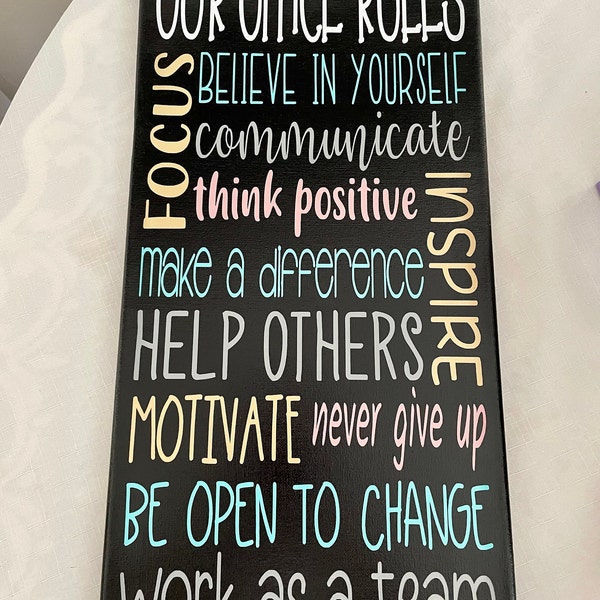 OUR OFFICE RULES
FOCUS
BELIEVE IN YOURSELF
communicate
think positive
INSPIRE
make a difference
HELP OTHERS
MOTIVATE never give up
BE OPEN TO CHANGE
work as a team